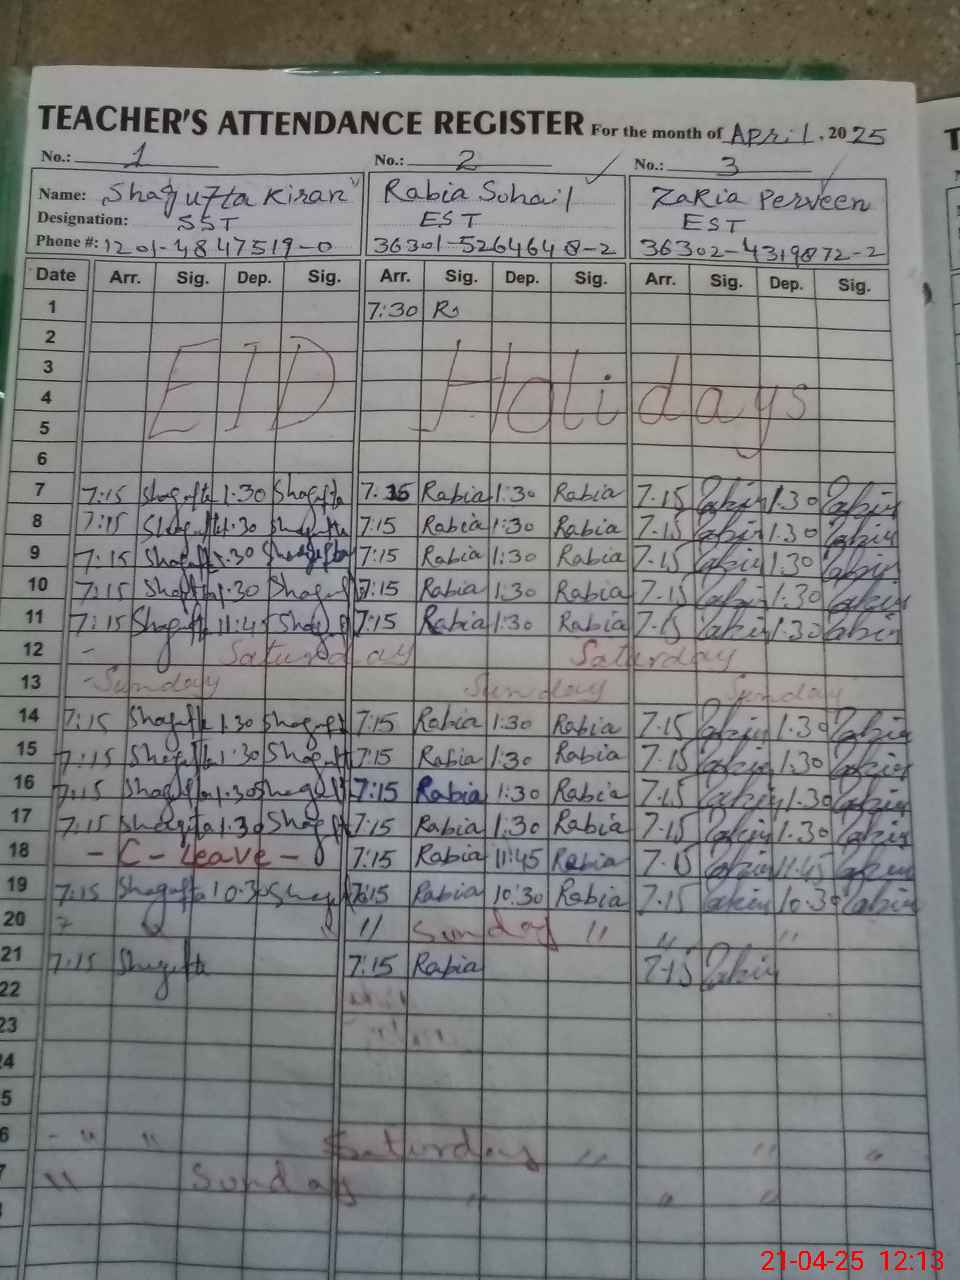 TEACHER'S ATTENDANCE REGISTER For the month of April, 2025
No.: 1 No.: 2 No.: 3
Name: Shagufta Kiran Rabia Sohail Zakia Perveen
Designation: SST EST EST
Phone #: 1201-4847519-0 36301-5264648-2 36302-4319872-2
Date Arr. Sig. Dep. Sig. Arr. Sig. Dep. Sig. Arr. Sig. Dep. Sig.
1 7:30
2
3
4 EID Holidays
5
6
7 7:15 Shagufta 1.30 Shagufta 7.15 Rabia 1:30 Rabia 7.15 Zakia 1.30 Zakia
8 7:15 Shagufta 1.30 Shagufta 7:15 Rabia 1:30 Rabia 7.15 Zakia 1.30 Zakia
9 7:15 Shagufta 1.30 Shagufta 7:15 Rabia 1:30 Rabia 7.15 Zakia 1.30 Zakia
10 7:15 Shagufta 1.30 Shagufta 7:15 Rabia 1:30 Rabia 7.15 Zakia 1.30 Zakia
11 7:15 Shagufta 11:45 Shagufta 7:15 Rabia 1:30 Rabia 7.15 Zakia 1.30 Zakia
12 - Saturday Saturday
13 - Sunday Sunday Sunday
14 7:15 Shagufta 1.30 Shagufta 7:15 Rabia 1:30 Rabia 7.15 Zakia 1.30 Zakia
15 7:15 Shagufta 1:30 Shagufta 7:15 Rabia 1:30 Rabia 7.15 Zakia 1.30 Zakia
16 7:15 Shagufta 1.30 Shagufta 7:15 Rabia 1:30 Rabia 7.15 Zakia 1.30 Zakia
17 7:15 Shagufta 1.30 Shagufta 7:15 Rabia 1:30 Rabia 7.15 Zakia 1.30 Zakia
18 - C - Leave - 7:15 Rabia 11:45 Rabia 7.15 Zakia 11.45 Zakia
19 7:15 Shagufta 10.30 Shagufta 7:15 Rabia 10:30 Rabia 7.15 Zakia 10.30 Zakia
20 " Sunday " " "
21 7:15 Shagufta 7:15 Rabia 7.15 Zakia
22
23
24
5
6 - " " Saturday " " "
7 " Sunday " " "
21-04-25 12:13